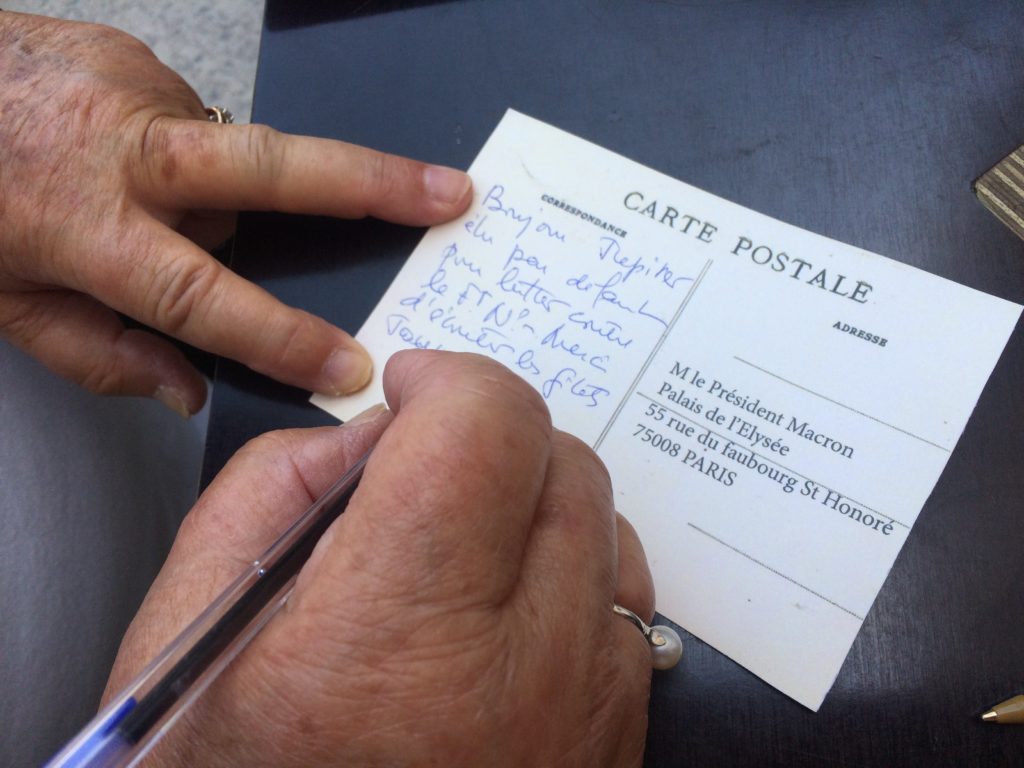 CARTE POSTALE
CORRESPONDANCE
Bonjour Jupiter
élu par défaut
pour lutter contre
le FN ! - Merci
d'écouter les gilets
ADRESSE
M le Président Macron
Palais de l'Elysée
55 rue du faubourg St Honoré
75008 PARIS